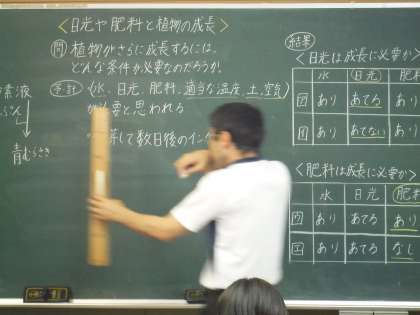 <日光や肥料と植物の成長>
問 植物がさらに成長するには、
どんな条件が必要なのだろうか。
予想 (水、日光、肥料、適当な温度、土、空気)
が必要と思われる
して数日後のインゲ
素液
青むらさき
結果
<日光は成長に必要か>
水 日光 肥
あり あてる あり
あり あてない あり
<肥料は成長に必要か>
水 日光 肥料
あり あてる あり
エ あり あてる なし